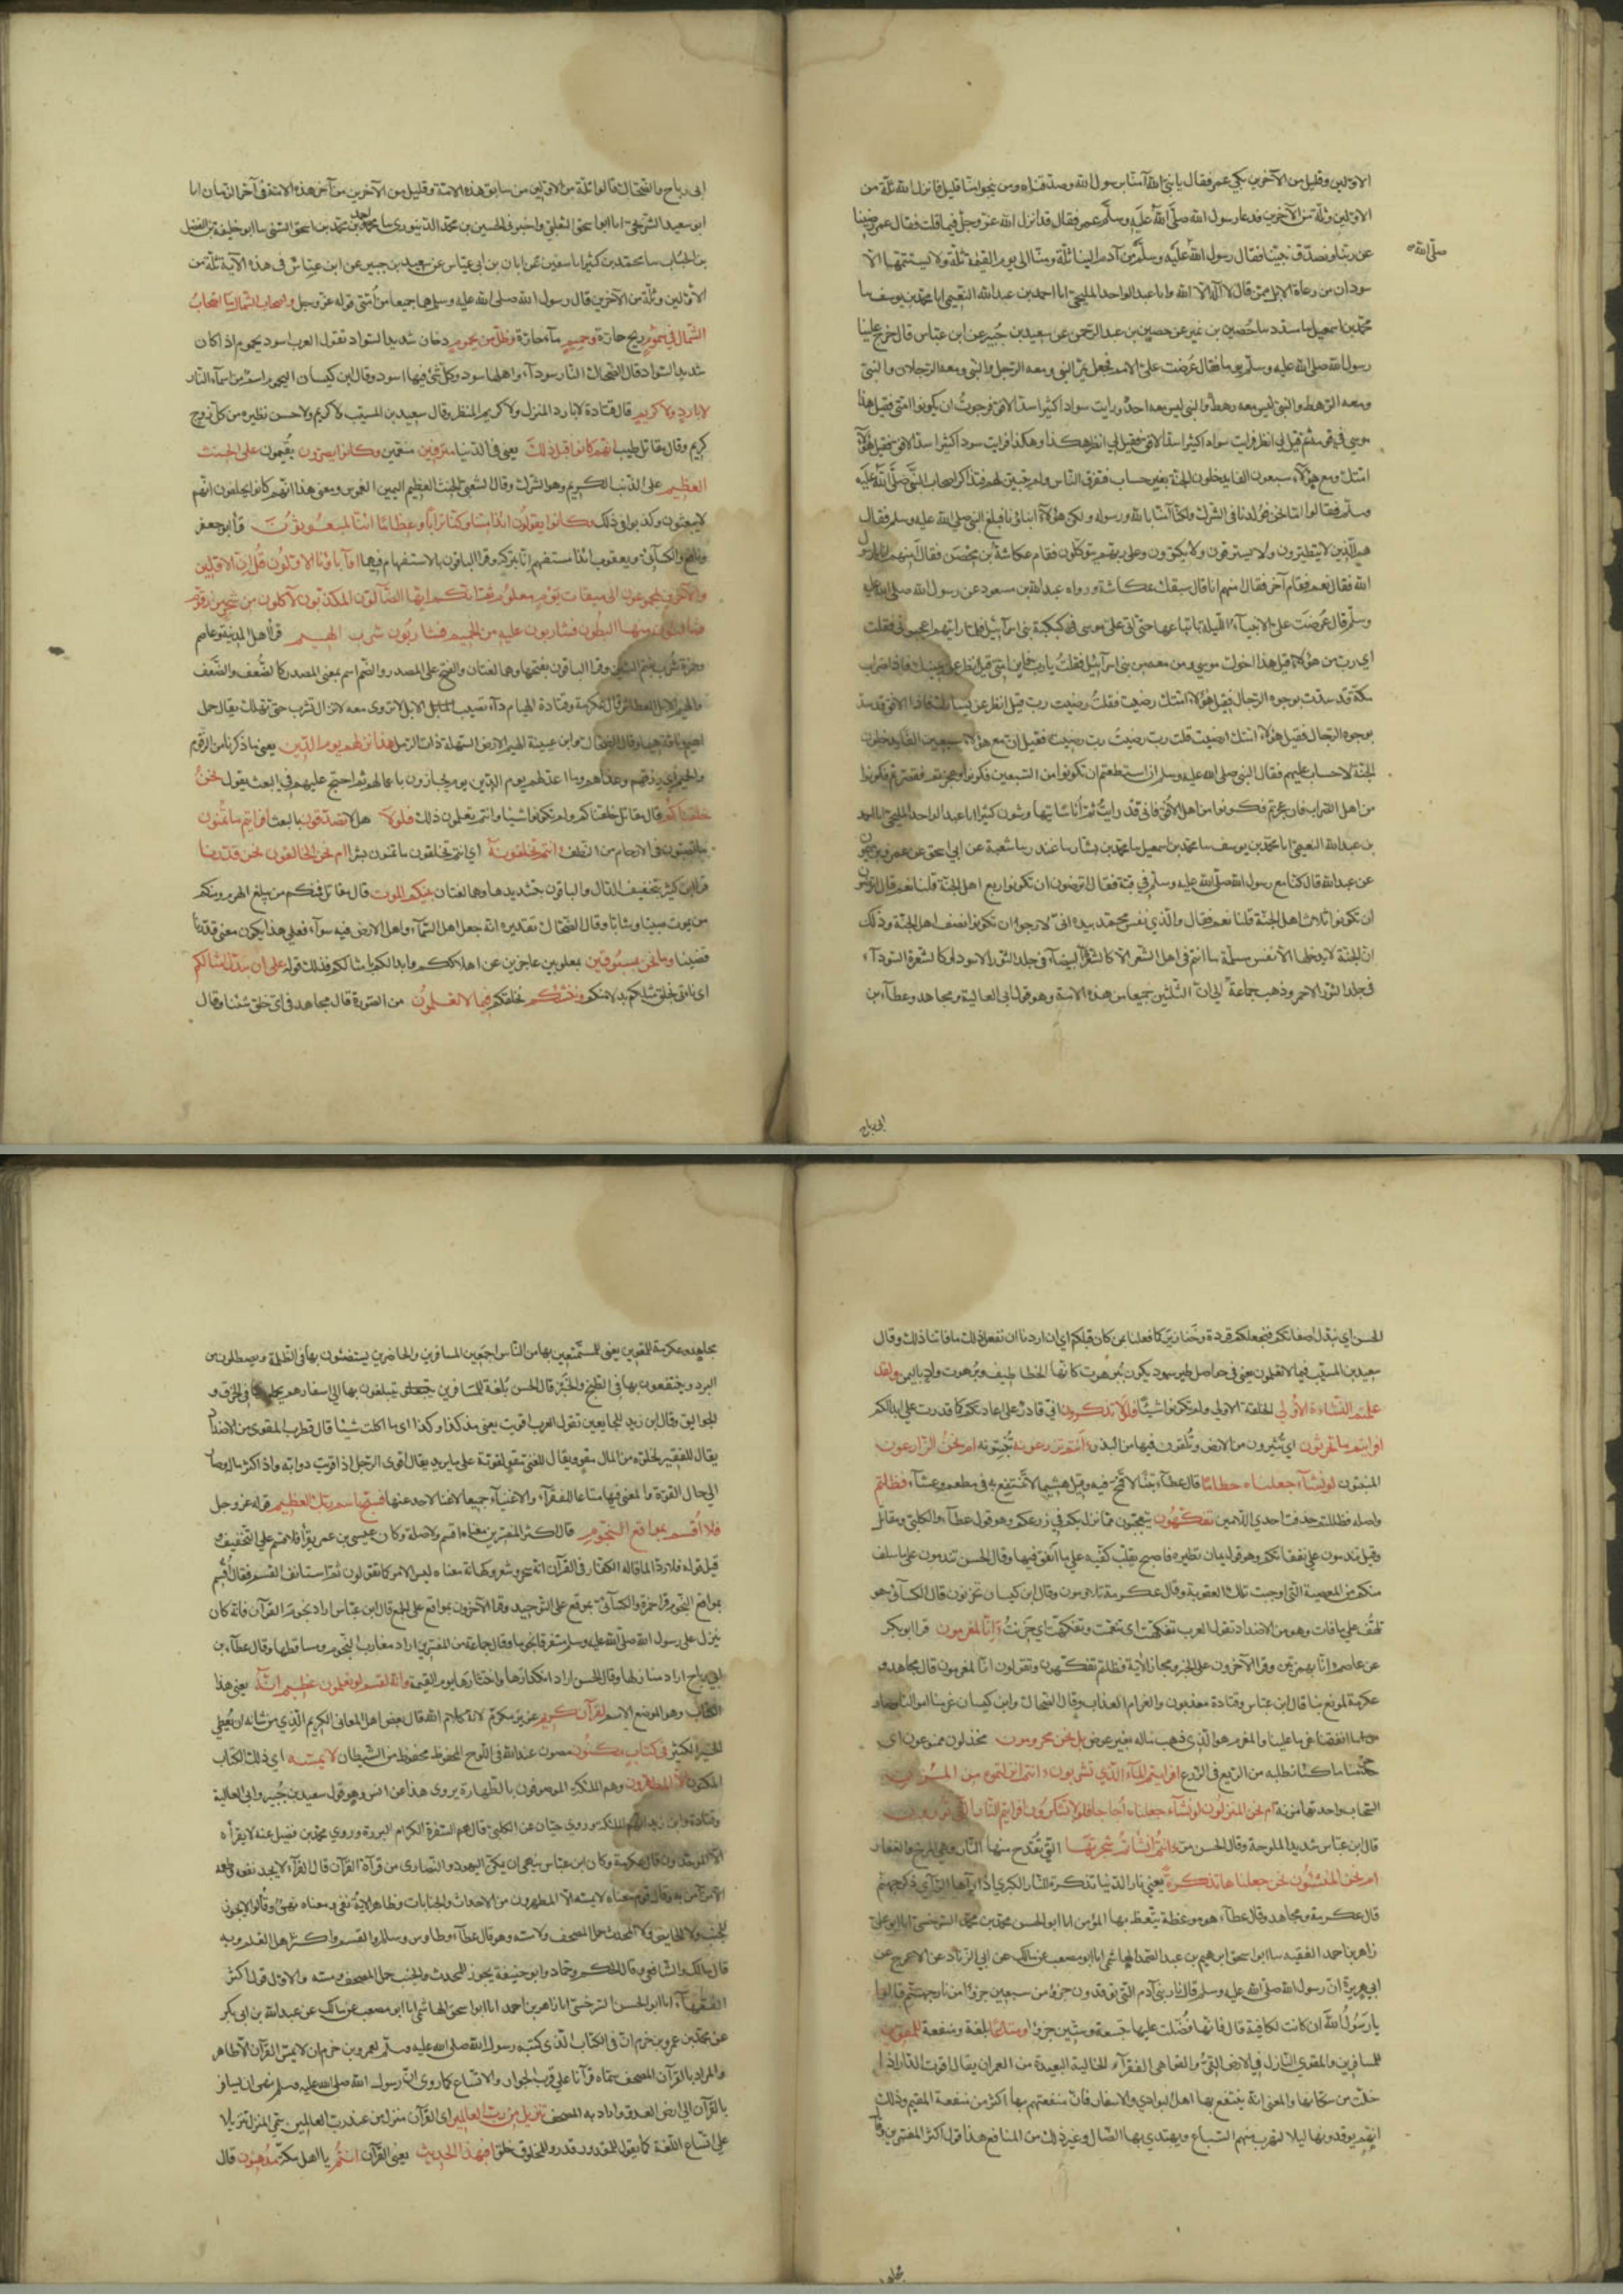 الاولين وقليل من الآخرين بكى عمر فقال يا نبي الله آمنا برسول الله وصدقناه ومن ينجو منا قليل فانزل الله ثلة من
الاولين وثلة من الآخرين فدعا رسول الله صلى الله عليه وسلم عمر فقال قد انزل الله عز وجل فيما قلت فقال عمر رضينا
عن ربنا ونصدق نبينا فقال رسول الله صلى الله عليه وسلم من آدم الينا ثلة ومنا الى يوم القيمة ثلة ولا يستتمها الا
صلى الله
سودان من رعاة الابل ممن قال لا اله الا الله وانا عبد الواحد المليحي انا احمد بن عبد الله النعيمي انا محمد بن يوسف سا
محمد بن اسمعيل سا مسدد سا حصين بن نمير عن حصين بن عبد الرحمن عن سعيد بن جبير عن ابن عباس قال خرج علينا
رسول الله صلى الله عليه وسلم يوما فقال عرضت علي الامم فجعل يمر النبي ومعه الرجل والنبي ومعه الرجلان والنبي
ومعه الرهط والنبي ليس معه رهط والنبي ليس معه احد ورايت سوادا كثيرا سد الافق فرجوت ان يكونوا امتي فقيل هذا
موسى في قومه ثم قيل لي انظر فرايت سوادا كثيرا سد الافق فقيل لي انظر هكذا وهكذا فرايت سوادا كثيرا سد الافق فقيل هؤلاء
امتك ومع هؤلاء سبعون الفا يدخلون الجنة بغير حساب فتفرق الناس ولم يتبين لهم فتذاكر اصحاب النبي صلى الله عليه
وسلم فقالوا اما نحن فولدنا في الشرك ولكنا آمنا بالله ورسوله ولكن هؤلاء ابناؤنا فبلغ النبي صلى الله عليه وسلم فقال
هم الذين لا يتطيرون ولا يسترقون ولا يكتوون وعلى ربهم يتوكلون فقام عكاشة بن محصن فقال امنهم انا يا رسول
الله فقال نعم فقام آخر فقال امنهم انا قال سبقك عكاشة ورواه عبد الله بن مسعود عن رسول الله صلى الله عليه
وسلم قال عرضت علي الانبياء الليلة باتباعها حتى اتى علي موسى في كبكبة بني اسرائيل فلما رايتهم اعجبوني فقلت
اي رب من هؤلاء قيل هذا اخوك موسى ومن معه من بني اسرائيل فقلت يا رب فاين امتي قيل انظر عن يمينك فاذا ضراب
مكة قد سدت بوجوه الرجال فقيل هؤلاء امتك رضيت فقلت رضيت رب قيل انظر عن يسارك فاذا الافق قد سد
بوجوه الرجال فقيل هؤلاء امتك ارضيت قلت رب رضيت رب رضيت فقيل ان مع هؤلاء سبعين الفا يدخلون
الجنة لا حساب عليهم فقال النبي صلى الله عليه وسلم ان استطعتم ان تكونوا من السبعين فكونوا وان عجزتم وقصرتم فكونوا
من اهل الضراب فان عجزتم فكونوا من اهل الافق فاني قد رايت ثم اناسا يتهاوشون كثيرا انا عبد الواحد المليحي انا احمد
بن عبد الله النعيمي انا محمد بن يوسف سا محمد بن اسمعيل سا محمد بن بشار سا غندر سا شعبة عن ابي اسحق عن عمرو بن ميمون
عن عبد الله قال كنا مع رسول الله صلى الله عليه وسلم في قبة فقال اترضون ان تكونوا ربع اهل الجنة قلنا نعم قال اترضون
ان تكونوا ثلث اهل الجنة قلنا نعم فقال والذي نفس محمد بيده اني لارجو ان تكونوا نصف اهل الجنة وذلك
ان الجنة لا يدخلها الا نفس مسلمة ما انتم في اهل الشرك الا كالشعرة البيضاء في جلد الثور الاسود او كالشعرة السوداء
في جلد الثور الاحمر وذهب جماعة الى ان الثلتين جميعا من هذه الامة وهو قول ابي العالية ومجاهد وعطاء بن
ابى رباح
ابى رباح والضحاك قالوا ثلة من الاولين من سابق هذه الامة وقليل من الآخرين من آخر هذه الامة في آخر الزمان انا
ابو سعيد الشريحي انا ابو اسحق الثعلبي واخبرني الحسين بن محمد الدينوري سا احمد بن محمد بن اسحق السني سا ابو خليفة الفضل
بن الحباب سا محمد بن كثير انا سفين عن ابان بن ابي عياش عن سعيد بن جبير عن ابن عباس في هذه الآية ثلة من
الاولين وثلة من الآخرين قال رسول الله صلى الله عليه وسلم هما جميعا من امتي قوله عز وجل واصحاب الشمال ما اصحاب
الشمال في سموم ريح حارة وحميم ماء حار وظل من يحموم دخان شديد السواد تقول العرب اسود يحموم اذا كان
شديد السواد قال الضحاك النار سوداء واهلها سود وكل شئ فيها اسود وقال ابن كيسان اليحموم اسم من اسماء النار
لا بارد ولا كريم قال قتادة لا بارد المنزل ولا كريم المنظر وقال سعيد بن المسيب لا كريم ولا حسن نظيره من كل زوج
كريم وقال مقاتل طيب انهم كانوا قبل ذلك يعني في الدنيا مترفين منعمين وكانوا يصرون يقيمون على الحنث
العظيم على الذنب الكبير وهو الشرك وقال الشعبي الحنث العظيم اليمين الغموس ومعنى هذا انهم كانوا يحلفون انهم
لا يبعثون وكذبوا في ذلك وكانوا يقولون ائذا متنا وكنا ترابا وعظاما ائنا لمبعوثون قرا ابو جعفر
ونافع والكسائي ويعقوب ائذا مستفهم انا بتركه وقرا الباقون بالاستفهام فيهما او آباؤنا الاولون قل ان الاولين
والآخرين لمجموعون الى ميقات يوم معلوم ثم انكم ايها الضالون المكذبون لآكلون من شجر من زقوم
فمالئون منها البطون فشاربون عليه من الحميم فشاربون شرب الهيم قرا اهل المدينة وعاصم
وحمزة شرب بضم الشين وقرا الباقون بفتحها وهما لغتان والفتح على المصدر والضم اسم بمعنى المصدر كالضعف والضعف
والهيم الابل العطاش قال عكرمة وقتادة الهيام داء يصيب الابل لا تروى معه لا تزال تشرب حتى تهلك يقال جمل
اهيم وناقة هيماء وقال الضحاك وابن عيينة الهيم الارض السهلة ذات الرمل هذا نزلهم يوم الدين يعني ما ذكرنا من الزقوم
والحميم اي رزقهم وغذاؤهم وما اعد لهم يوم الدين يوم يجازون باعمالهم ثم احتج عليهم في البعث يقول نحن
خلقناكم قال مقاتل خلقناكم ولم تكونوا شيئا وانتم تعلمون ذلك فلولا هلا تصدقون بالبعث افرايتم ما تمنون
ما تصبون في الارحام من النطف ءانتم تخلقونه اي انتم تخلقون ما تمنون بشرا ام نحن الخالقون نحن قدرنا
قرا ابن كثير بتخفيف الدال والباقون بتشديدها وهما لغتان بينكم الموت قال مقاتل فمنكم من يبلغ الهرم ومنكم
من يموت صبيا وشابا وقال الضحاك تقديره انه جعل اهل السماء واهل الارض فيه سواء فعلى هذا يكون معنى قدرنا
قضينا وما نحن بمسبوقين بمغلوبين عاجزين عن اهلاككم وابدالكم بامثالكم فذلك قوله على ان نبدل امثالكم
اي ناتي بخلق مثلكم بدلا منكم وننشئكم نخلقكم فيما لا تعلمون من الصورة قال مجاهد في اي خلق شئنا وقال
الحسن اي نبدل صفاتكم فنجعلكم قردة وخنازير كما فعلنا بمن كان قبلكم اي ان اردنا ان نفعل ذلك ما فاتنا ذلك وقال
سعيد بن المسيب فيما لا تعلمون يعني في حواصل طير سود يكون ببرهوت كانها الخطاطيف وبرهوت واد باليمن ولقد
علمتم النشاة الاولى الخلقة الاولى ولم تكونوا شيئا فلولا تذكرون اني قادر على اعادتكم كما قدرت على ابدائكم
افرايتم ما تحرثون اي تثيرون من الارض وتلقون فيها من البذر ءانتم تزرعونه تنبتونه ام نحن الزارعون
المنبتون لو نشاء لجعلناه حطاما قال عطاء تبنا لا قمح فيه وقيل هشيما لا ينتفع به في مطعم وغشاء فظلتم
واصله فظللتم حذفت احدى اللامين تفكهون تتعجبون مما نزل بكم في زرعكم وهو قول عطاء والكلبي ومقاتل
وقيل تندمون على نفقاتكم وهو قول يمان نظيره فاصبح يقلب كفيه على ما انفق فيها وقال الحسن تندمون على ما سلف
منكم من المعصية التي اوجبت تلك العقوبة وقال عكرمة تتلاومون وقال ابن كيسان تحزنون قال الكسائي هو
تلهف على ما فات وهو من الاضداد تقول العرب تفكهت اي تنعمت وتفكهت اي حزنت انا لمغرمون قرا ابو بكر
عن عاصم ءانا بهمزتين وقرا الآخرون على الخبر ومجاز الآية فظلتم تفكهون وتقولون انا لمغرمون قال مجاهد و
عكرمة لمولع بنا قال ابن عباس وقتادة معذبون والغرام العذاب وقال الضحاك وابن كيسان غرمنا اموالنا وصار
ما انفقنا غرما علينا والمغرم هو الذي ذهب ماله بغير عوض بل نحن محرومون محدودون ممنوعون اي
حرمنا ما كنا نطلبه من الريع في الزرع افرايتم الماء الذي تشربون ءانتم انزلتموه من المزن
السحاب واحدتها مزنة ام نحن المنزلون لو نشاء جعلناه اجاجا فلولا تشكرون افرايتم النار التي تورون
قال ابن عباس شديد الملوحة وقال الحسن مرا ءانتم انشاتم شجرتها التي تقدح منها النار وهي المرخ والعفار
ام نحن المنشئون نحن جعلناها تذكرة يعني نار الدنيا تذكرة للنار الكبرى اذا رآها الرائي ذكر جهنم
قال عكرمة ومجاهد وقال عطاء هو موعظة يتعظ بها المؤمن انا ابو الحسن محمد بن محمد السرخسي انا ابو علي
زاهر بن احمد الفقيه سا ابو اسحق ابرهيم بن عبد الصمد الهاشمي انا ابو مصعب عن مالك عن ابي الزناد عن الاعرج عن
ابي هريرة ان رسول الله صلى الله عليه وسلم قال نار بني آدم التي توقدون جزؤ من سبعين جزؤا من نار جهنم قالوا
يا رسول الله ان كانت لكافية قال فانها فضلت عليها بتسعة وستين جزؤا ومتاعا بلغة ومنفعة للمقوين
للمسافرين والمقوي النازل في الارض القي والقواهي القفراء الخالية البعيدة من العمران يقال اقوت الدار اذا
خلت من سكانها والمعنى انه ينتفع بها اهل البوادي والاسفار فان منفعتهم بها اكثر من منفعة المقيم وذلك
انهم يوقدونها ليلا لتهرب منهم السباع ويهتدي بها الضال وغير ذلك من المنافع هذا قول اكثر المفسرين وقال
مجاهد
مجاهد وعكرمة للمقوين يعني للمستمتعين بها من الناس اجمعين المسافرين والحاضرين يستضئون بها في الظلمة ويصطلون من
البرد وينتفعون بها في الطبخ والخبز قال الحسن بلغة للمسافرين يتبلغون بها الى اسفارهم يحملونها في الخرق و
الجواليق وقال ابن زيد للجايعين تقول العرب اقويت يعني منذ كذا وكذا اي ما اكلت شيئا قال قطرب المقوي من الاضداد
يقال للفقير لخلوه من المال مقو ويقال للغني مقو لقوته على ما يريد يقال اقوى الرجل اذا قويت دوابه واذا كثر ماله وصار
الى حال القوة والمعنى فيها متاعا للفقراء والاغنياء جميعا لا غنا لاحد عنها فسبح باسم ربك العظيم قوله عز وجل
فلا اقسم بمواقع النجوم قال اكثر المفسرين معناه اقسم ولا صلة وكان عيسى بن عمر يقرا فلاقسم على التخفيف و
قيل قوله فلا رد لما قاله الكفار في القرآن انه سحر وشعر وكهانة معناه ليس الامر كما تقولون ثم استانف القسم فقال اقسم
بمواقع النجوم قرا حمزة والكسائي بموقع على التوحيد وقرا الآخرون بمواقع على الجمع قال ابن عباس اراد نجوم القرآن فانه كان
ينزل على رسول الله صلى الله عليه وسلم متفرقا نجوما وقال جماعة من المفسرين اراد مغارب النجوم ومساقطها وقال عطاء بن
ابي رباح اراد منازلها وقال الحسن اراد انكدارها وانتثارها يوم القيمة وانه لقسم لو تعلمون عظيم انه يعني هذا
الكتاب وهو موضع القسم لقرآن كريم عزيز مكرم لانه كلام الله قال بعض اهل المعاني الكريم الذي من شانه ان يعطي
الخير الكثير في كتاب مكنون مصون عند الله في اللوح المحفوظ محفوظ من الشيطان لا يمسه اي ذلك الكتاب
المكنون الا المطهرون وهم الملئكة الموصوفون بالطهارة يروى هذا عن انس وهو قول سعيد بن جبير وابي العالية
وقتادة وابن زيد انهم الملئكة وروى حبان عن الكلبي قال هم السفرة الكرام البررة وروى محمد بن فضيل عنه لا يقرأه
الا الموحدون قال عكرمة وكان ابن عباس ينهى ان يمكن اليهود والنصارى من قراءة القرآن قال الفراء لا يجد نفعه وطعمه
الا من آمن به وقال قوم معناه لا يمسه الا المطهرون من الاحداث والجنابات وظاهر الآية نفي ومعناه نهي وقالوا لا يجوز
للجنب ولا للحايض ولا المحدث حمل المصحف ولا مسه وهو قول عطاء وطاوس وسالم والقسم واكثر اهل العلم وبه
قال مالك والشافعي وقال الحكم وحماد وابو حنيفة يجوز للمحدث والجنب حمل المصحف ومسه والاول قول اكثر
الفقهاء انا ابو الحسن السرخسي انا زاهر بن احمد انا ابو اسحق الهاشمي انا ابو مصعب عن مالك عن عبد الله بن ابي بكر
عن محمد بن عمرو بن حزم ان في الكتاب الذي كتبه رسول الله صلى الله عليه وسلم لعمرو بن حزم ان لا يمس القرآن الا طاهر
والمراد بالقرآن المصحف سماه قرآنا على قرب الجوار والاتساع كما روي ان رسول الله صلى الله عليه وسلم نهى ان يسافر
بالقرآن الى ارض العدو واراد به المصحف تنزيل من رب العالمين اي القرآن منزل من عند رب العالمين سمي المنزل تنزيلا
على اتساع اللغة كما يقول للمقدور قدر وللمخلوق خلق افبهذا الحديث يعني القرآن انتم يا اهل مكة مدهنون قال